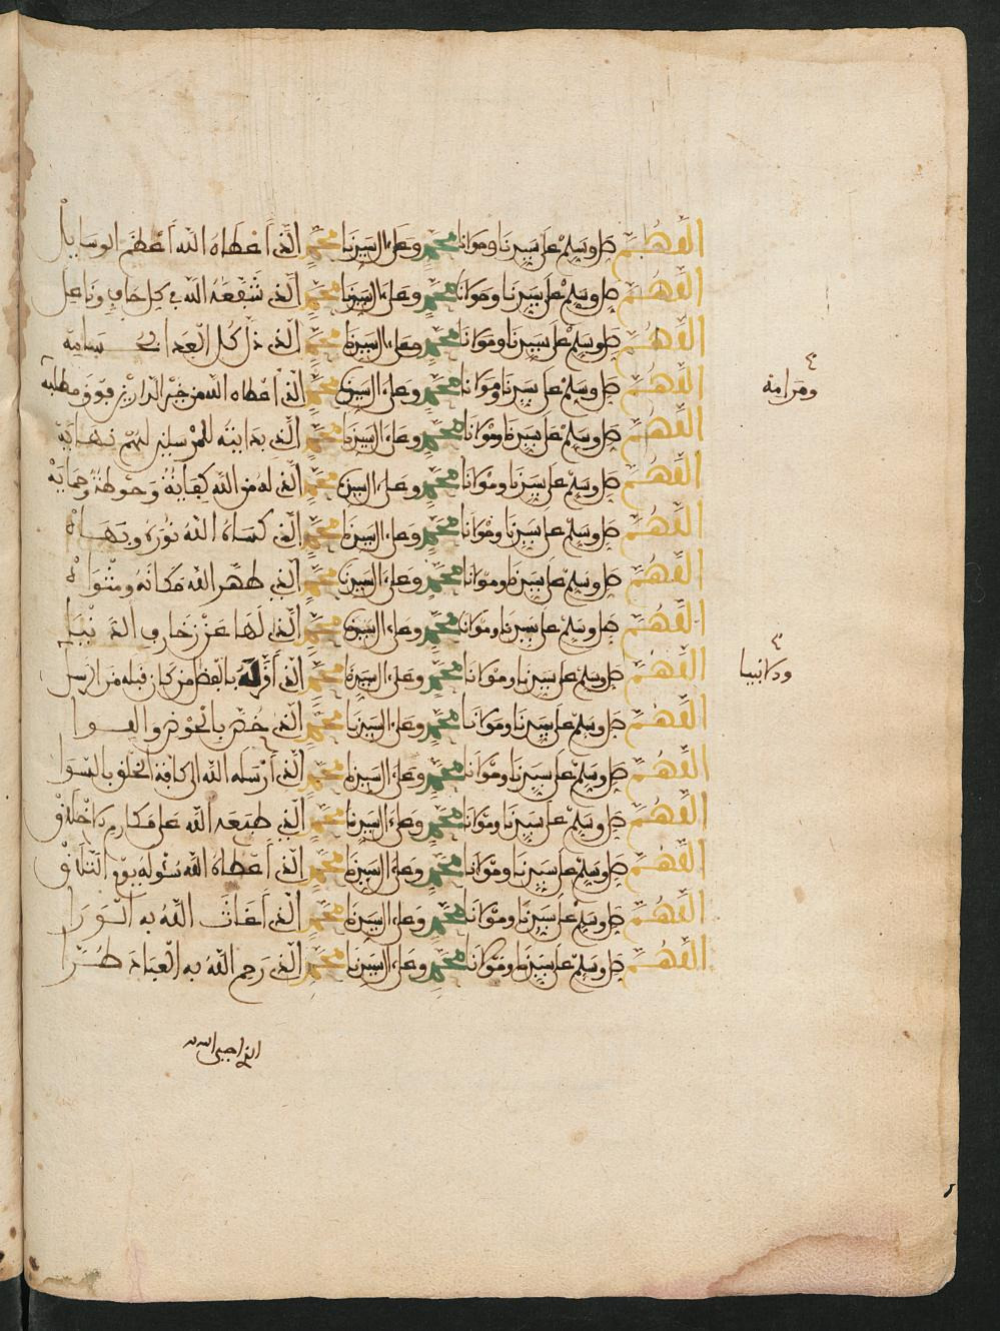 اللهم صل وسلم على سيدنا ومولانا محمد وعلى ءال سيدنا محمد الذى أعطاه الله أعظم الوسايل
اللهم صل وسلم على سيدنا ومولانا محمد وعلى ءال سيدنا محمد الذى شفعه الله في كل حاف وناعل
اللهم صل وسلم على سيدنا ومولانا محمد وعلى ءال سيدنا محمد الذى ذل كل العدا
ومرامه
اللهم صل وسلم على سيدنا ومولانا محمد وعلى ءال سيدنا محمد الذى أعطاه الله من خير الدارين فوق مطلبه
اللهم صل وسلم على سيدنا ومولانا محمد وعلى ءال سيدنا محمد الذى بدايته للمرسلين لهم نهاية
اللهم صل وسلم على سيدنا ومولانا محمد وعلى ءال سيدنا محمد الذى له من الله كفاية وحوطة وحماية
اللهم صل وسلم على سيدنا ومولانا محمد وعلى ءال سيدنا محمد الذى كساه الله نوره وبهاه
اللهم صل وسلم على سيدنا ومولانا محمد وعلى ءال سيدنا محمد الذى طهر الله مكانه ومثواه
اللهم صل وسلم على سيدنا ومولانا محمد وعلى ءال سيدنا محمد الذى لها عن زخارف الدنيا
اللهم صل وسلم على سيدنا ومولانا محمد وعلى ءال سيدنا محمد الذى أقر له بالفضل من كان قبله من الرسل
والانبيا
اللهم صل وسلم على سيدنا ومولانا محمد وعلى ءال سيدنا محمد الذى خص بالحوض واللوا
اللهم صل وسلم على سيدنا ومولانا محمد وعلى ءال سيدنا محمد الذى أرسله الله الى كافة الخلق بالسوا
اللهم صل وسلم على سيدنا ومولانا محمد وعلى ءال سيدنا محمد الذى طبعه الله على مكارم الاخلاق
اللهم صل وسلم على سيدنا ومولانا محمد وعلى ءال سيدنا محمد الذى أعطاه الله سئوله يوم التلاق
اللهم صل وسلم على سيدنا ومولانا محمد وعلى ءال سيدنا محمد الذى أغاث الله به الورا
اللهم صل وسلم على سيدنا ومولانا محمد وعلى ءال سيدنا محمد الذى رحم الله به العباد طرا
الذى احيى الله